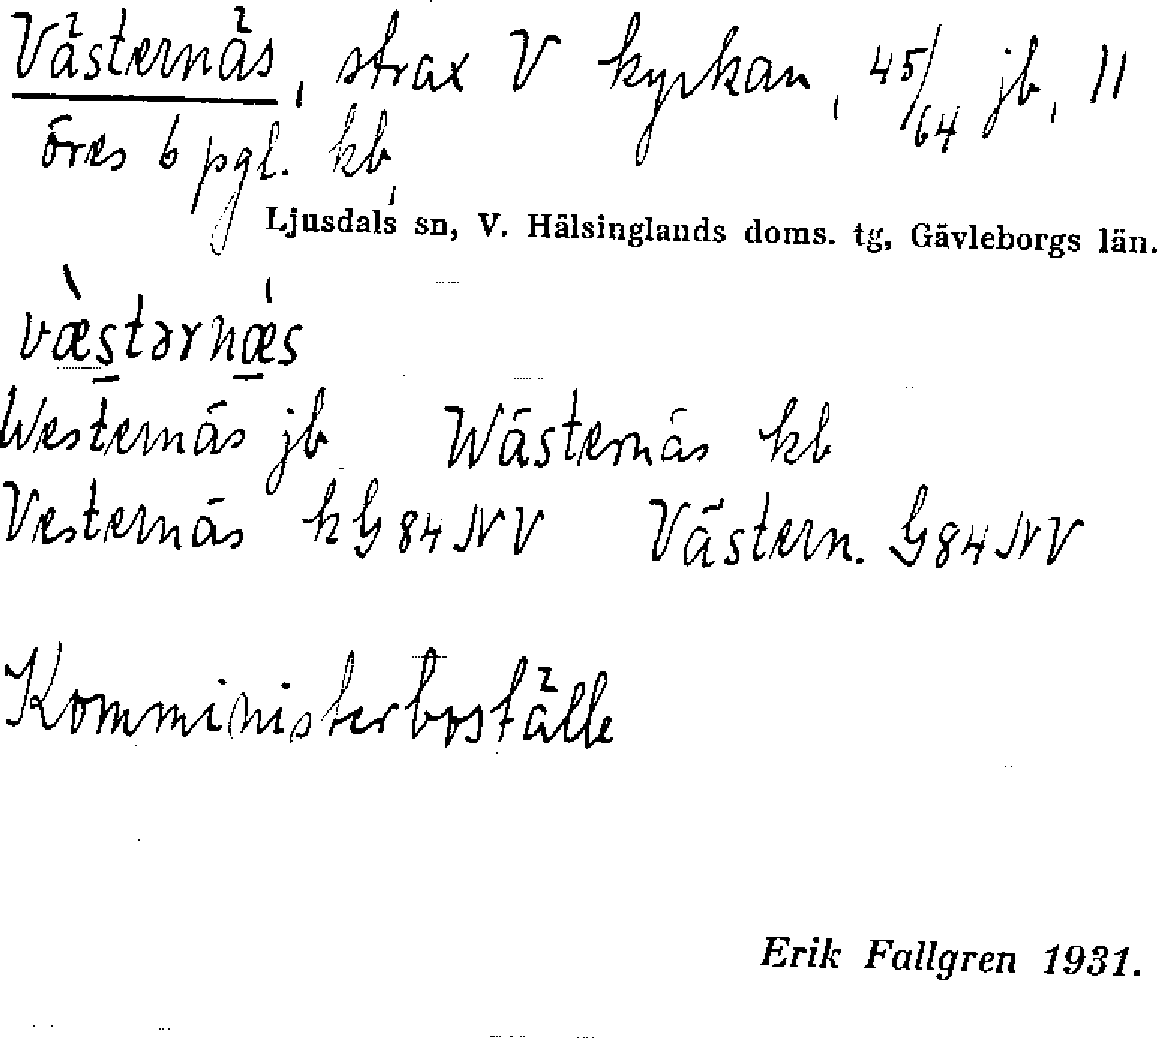 Västernäs, strax V kyrkan, 45/64 jb, 11
öres 6 pgl. kb,
Ljusdals sn, V. Hälsinglands doms. tg, Gävleborgs län.
væ̀stərnæ̀s
Westernäs jb Wästernäs kb
Vesternäs kG84NV Västern. G84NV
Komministerboställe
Erik Fallgren 1931.